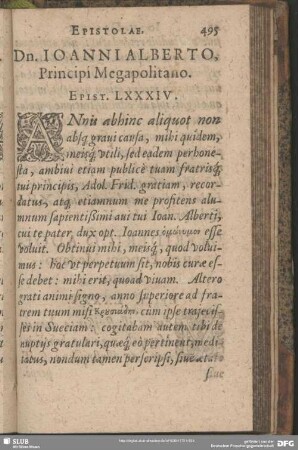 EPISTOLAE. 495
Dn. IOANNI ALBERTO,
Principi Megapolitano.
EPIST. LXXXIV.
ANnis abhinc aliquot non
absq; graui causa, mihi quidem,
meisq́; vtili, sed eadem perhone-
sta, ambiui etiam publicè tuam fratrisq́;
tui principis, Adol. Frid. gratiam, recor-
datus, atq; etiamnum me profitens alu-
mnum sapientißimi aui tui Ioan. Alberti,
cui te pater, dux opt. Ioannes ὁμώνυμον esse
voluit. Obtinui mihi, meisq́;, quod volui-
mus: hoc vt perpetuum sit, nobis curæ es-
se debet: mihi erit, quoad viuam. Altero
grati animi signo, anno superiore ad fra-
trem tuum misi
cum ipse traiecis-
set in Sueciam: cogitabam autem, tibi de
nuptijs gratulari, quæq́; eò pertinent, medi-
tatus, nondum tamen perscripsi, siue ætate
siue
SLUB
Wir führen Wissen.